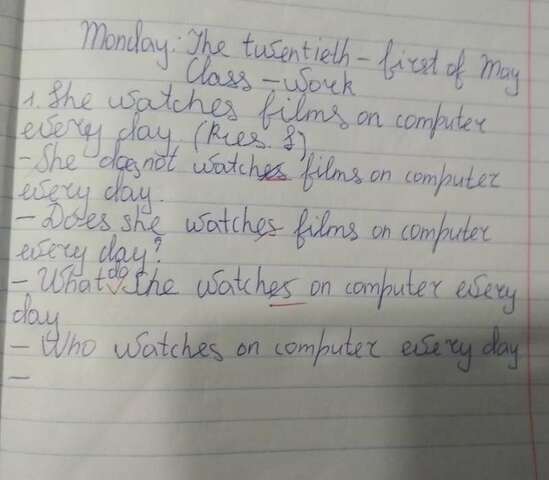 Monday: The twentieth - first of May
Class - work
1. She watches films on computer
every day (Pres. S)
- She does not watches films on computer
every day.
- Does she watches films on computer
every day?
- What do she watches on computer every
day
- Who watches on computer every day
-